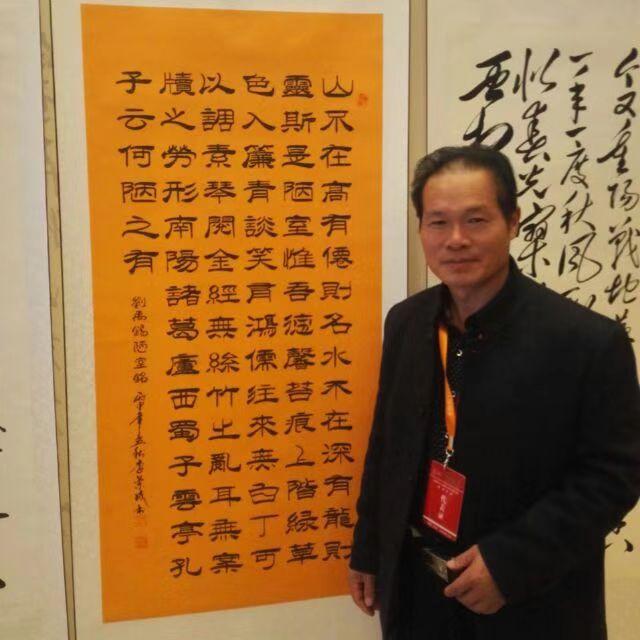 又重陽戰地
一年一度秋風
似春光寥
山不在高有僊則名水不在深有龍則
靈斯是陋室惟吾德馨苔痕上階綠草
色入簾青談笑有鴻儒往來無白丁可
以調素琴閱金經無絲竹之亂耳無案
牘之勞形南陽諸葛廬西蜀子雲亭孔
子云何陋之有
劉禹錫陋室銘